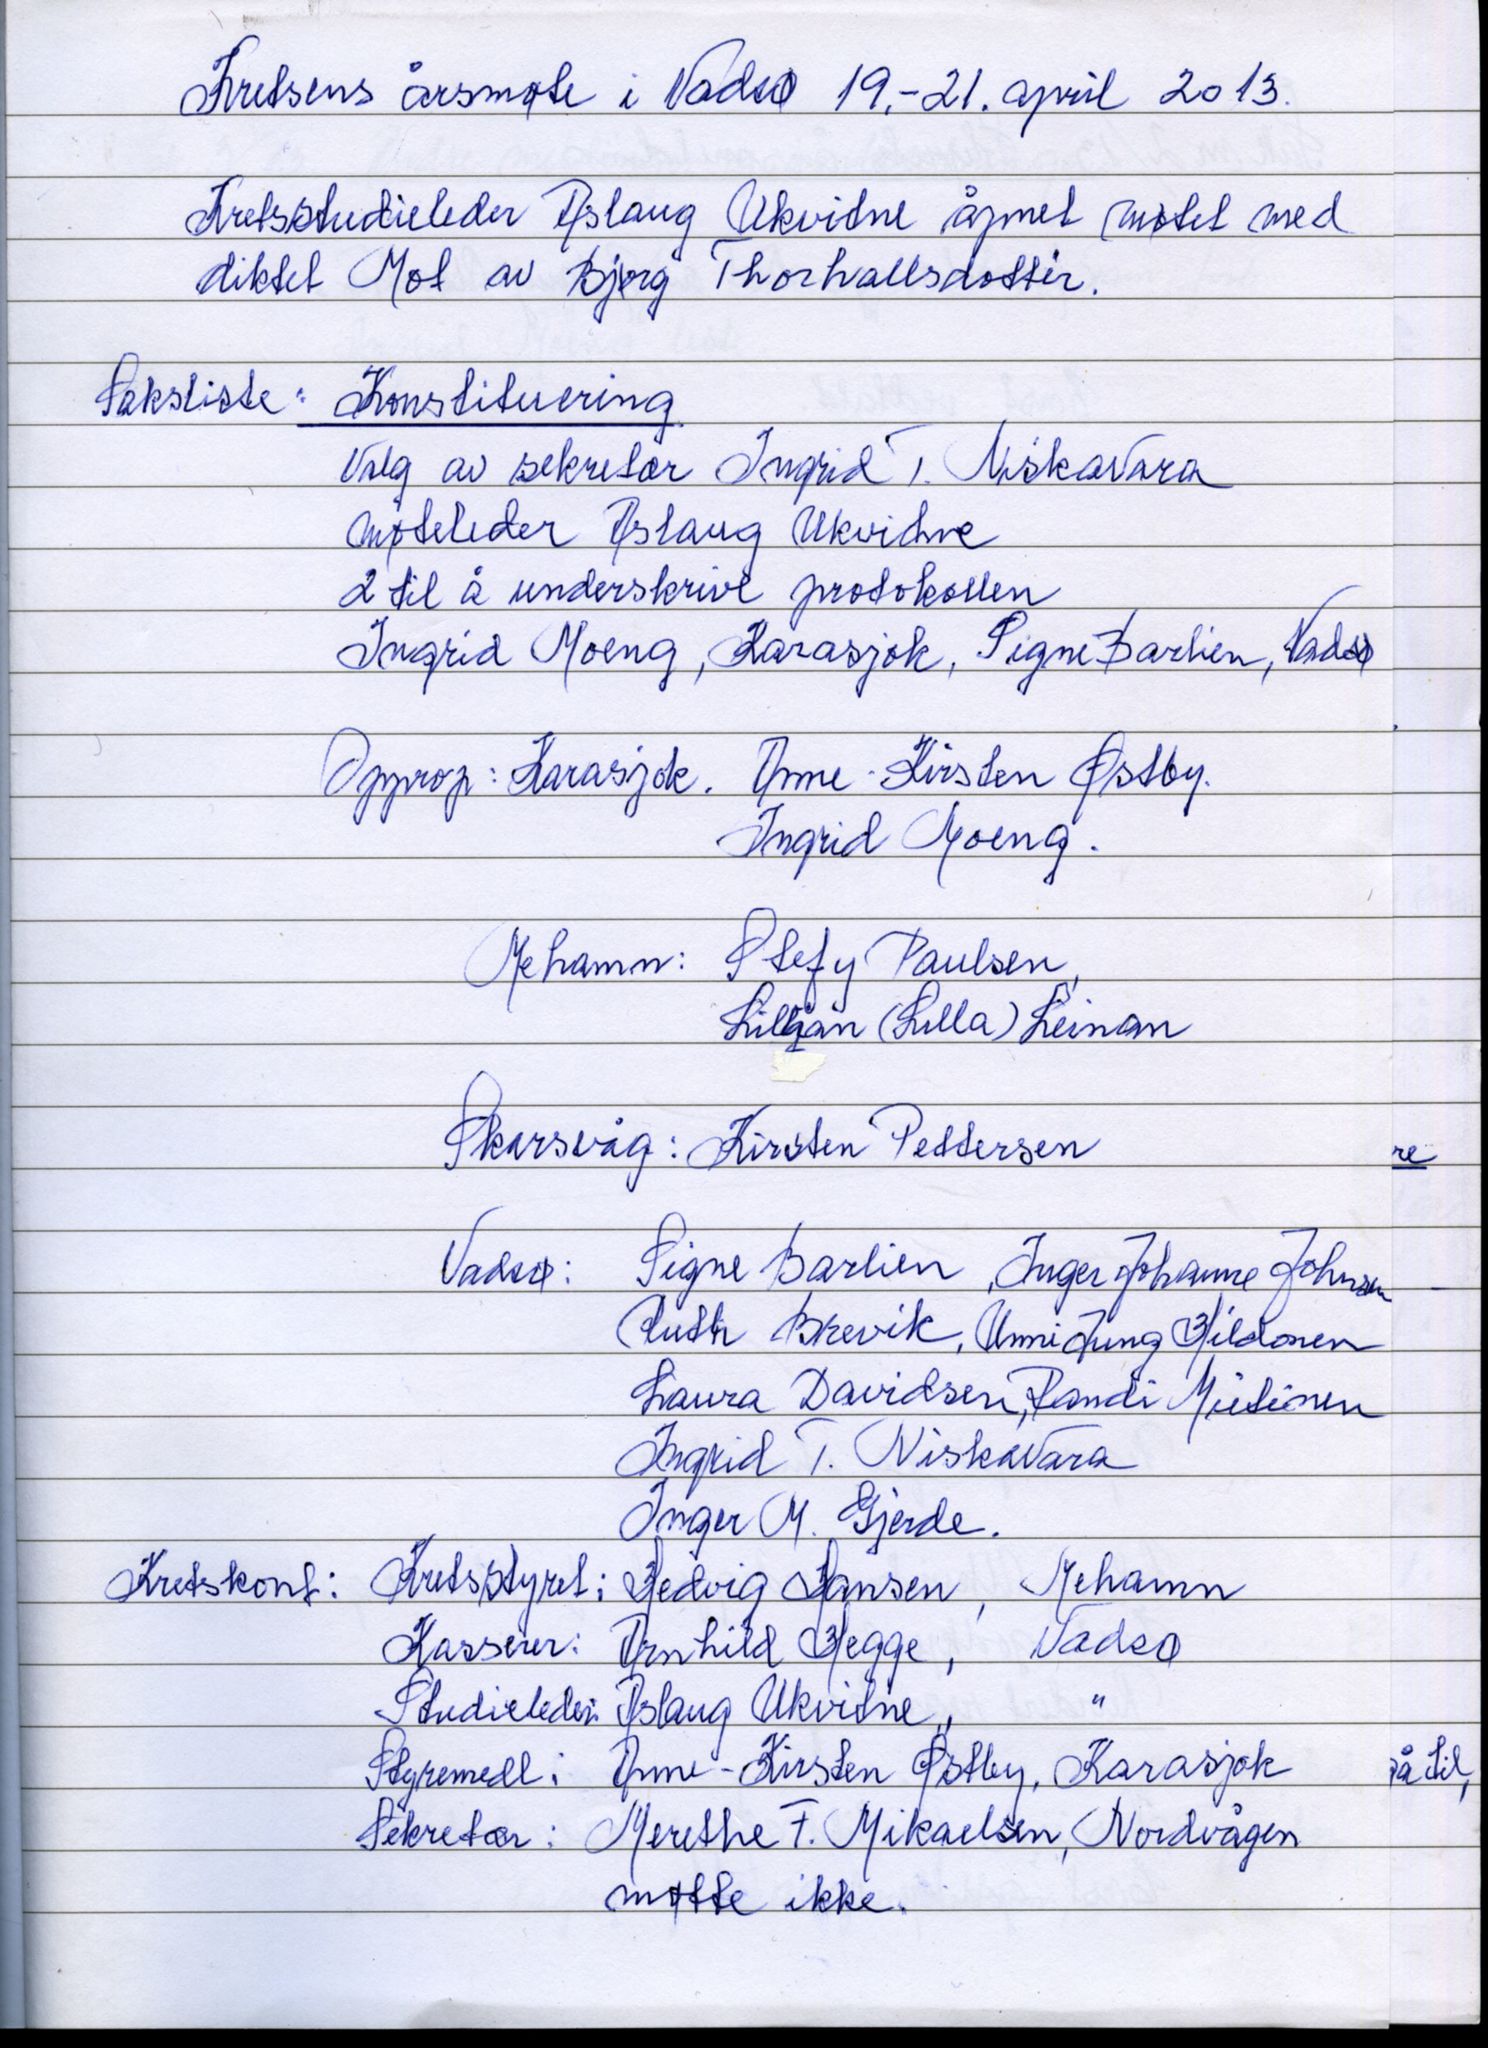 Kretsens årsmøte i Vadsø 19.-21. april 2013.
Kretsstudieleder Aslaug Ukvitne åpnet møtet med
diktet Mot av Bjørg Thorhallsdottir.
Saksliste: Konstituering
Valg av sekretær Ingrid T. Niskavara
møteleder Aslaug Ukvitne
2 til å underskrive protokollen
Ingrid Moeng, Karasjok, Signe Barlien, Vadsø
Opprop: Karasjok. Anne-Kirsten Østby.
Ingrid Moeng.
Mehamn: Stefy Paulsen,
Lilljan (Lilla) Leinan
Skarsvåg: Kirsten Pettersen
re
Vadsø: Signe Barlien, Inger Johanne Johnsen
Ruth Brevik, Unni Jung Hildonen
Laura Davidsen, Randi Mietinen
Ingrid T. Niskavara
Inger M. Gjerde.
Kretskont: Kretsstyret: Hedvig Hansen, Mehamn
Kasserer: Arnhild Hegge, Vadsø
Studieleder: Aslaug Ukvitne, "
Styremedl: Anne-Kirsten Østby, Karasjok
å til,
Sekretær: Merethe F. Mikaelsen, Nordvågen
møtte ikke.